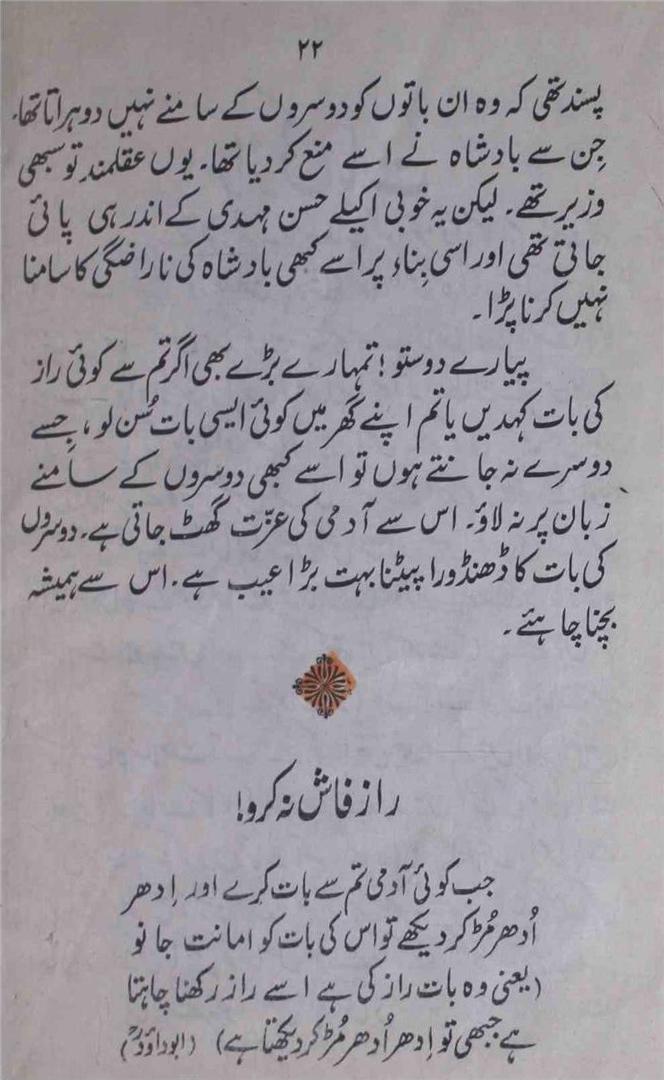 ۲۲
پسند تھی کہ وہ ان باتوں کو دوسروں کے سامنے نہیں دوہراتا تھا۔
جِن سے بادشاہ نے اسے منع کر دیا تھا۔ یوں عقلمند تو سبھی
وزیر تھے۔ لیکن یہ خوبی اکیلے حسن مہدی کے اندر ہی پائی
جاتی تھی اور اسی بِناء پر اسے کبھی بادشاہ کی ناراضگی کا سامنا
نہیں کرنا پڑا۔
پیارے دوستو! تمہارے بڑے بھی اگر تم سے کوئی راز
کی بات کہدیں یا تم اپنے گھر میں کوئی ایسی بات سُن لو، جِسے
دوسرے نہ جانتے ہوں تو اسے کبھی دوسروں کے سامنے
زبان پر نہ لاؤ۔ اس سے آدمی کی عزّت گھٹ جاتی ہے۔ دوسروں
کی بات کا ڈھنڈورا پیٹنا بہت بڑا عیب ہے۔ اس سے ہمیشہ
بچنا چاہئے۔
راز فاش نہ کرو!
جب کوئی آدمی تم سے بات کرے اور اِدھر
اُدھر مُڑ کر دیکھے تو اس کی بات کو امانت جانو
(یعنی وہ بات راز کی ہے اسے راز رکھنا چاہتا
ہے جبھی تو اِدھر اُدھر مُڑ کر دیکھتا ہے) (ابوداؤدؒ)